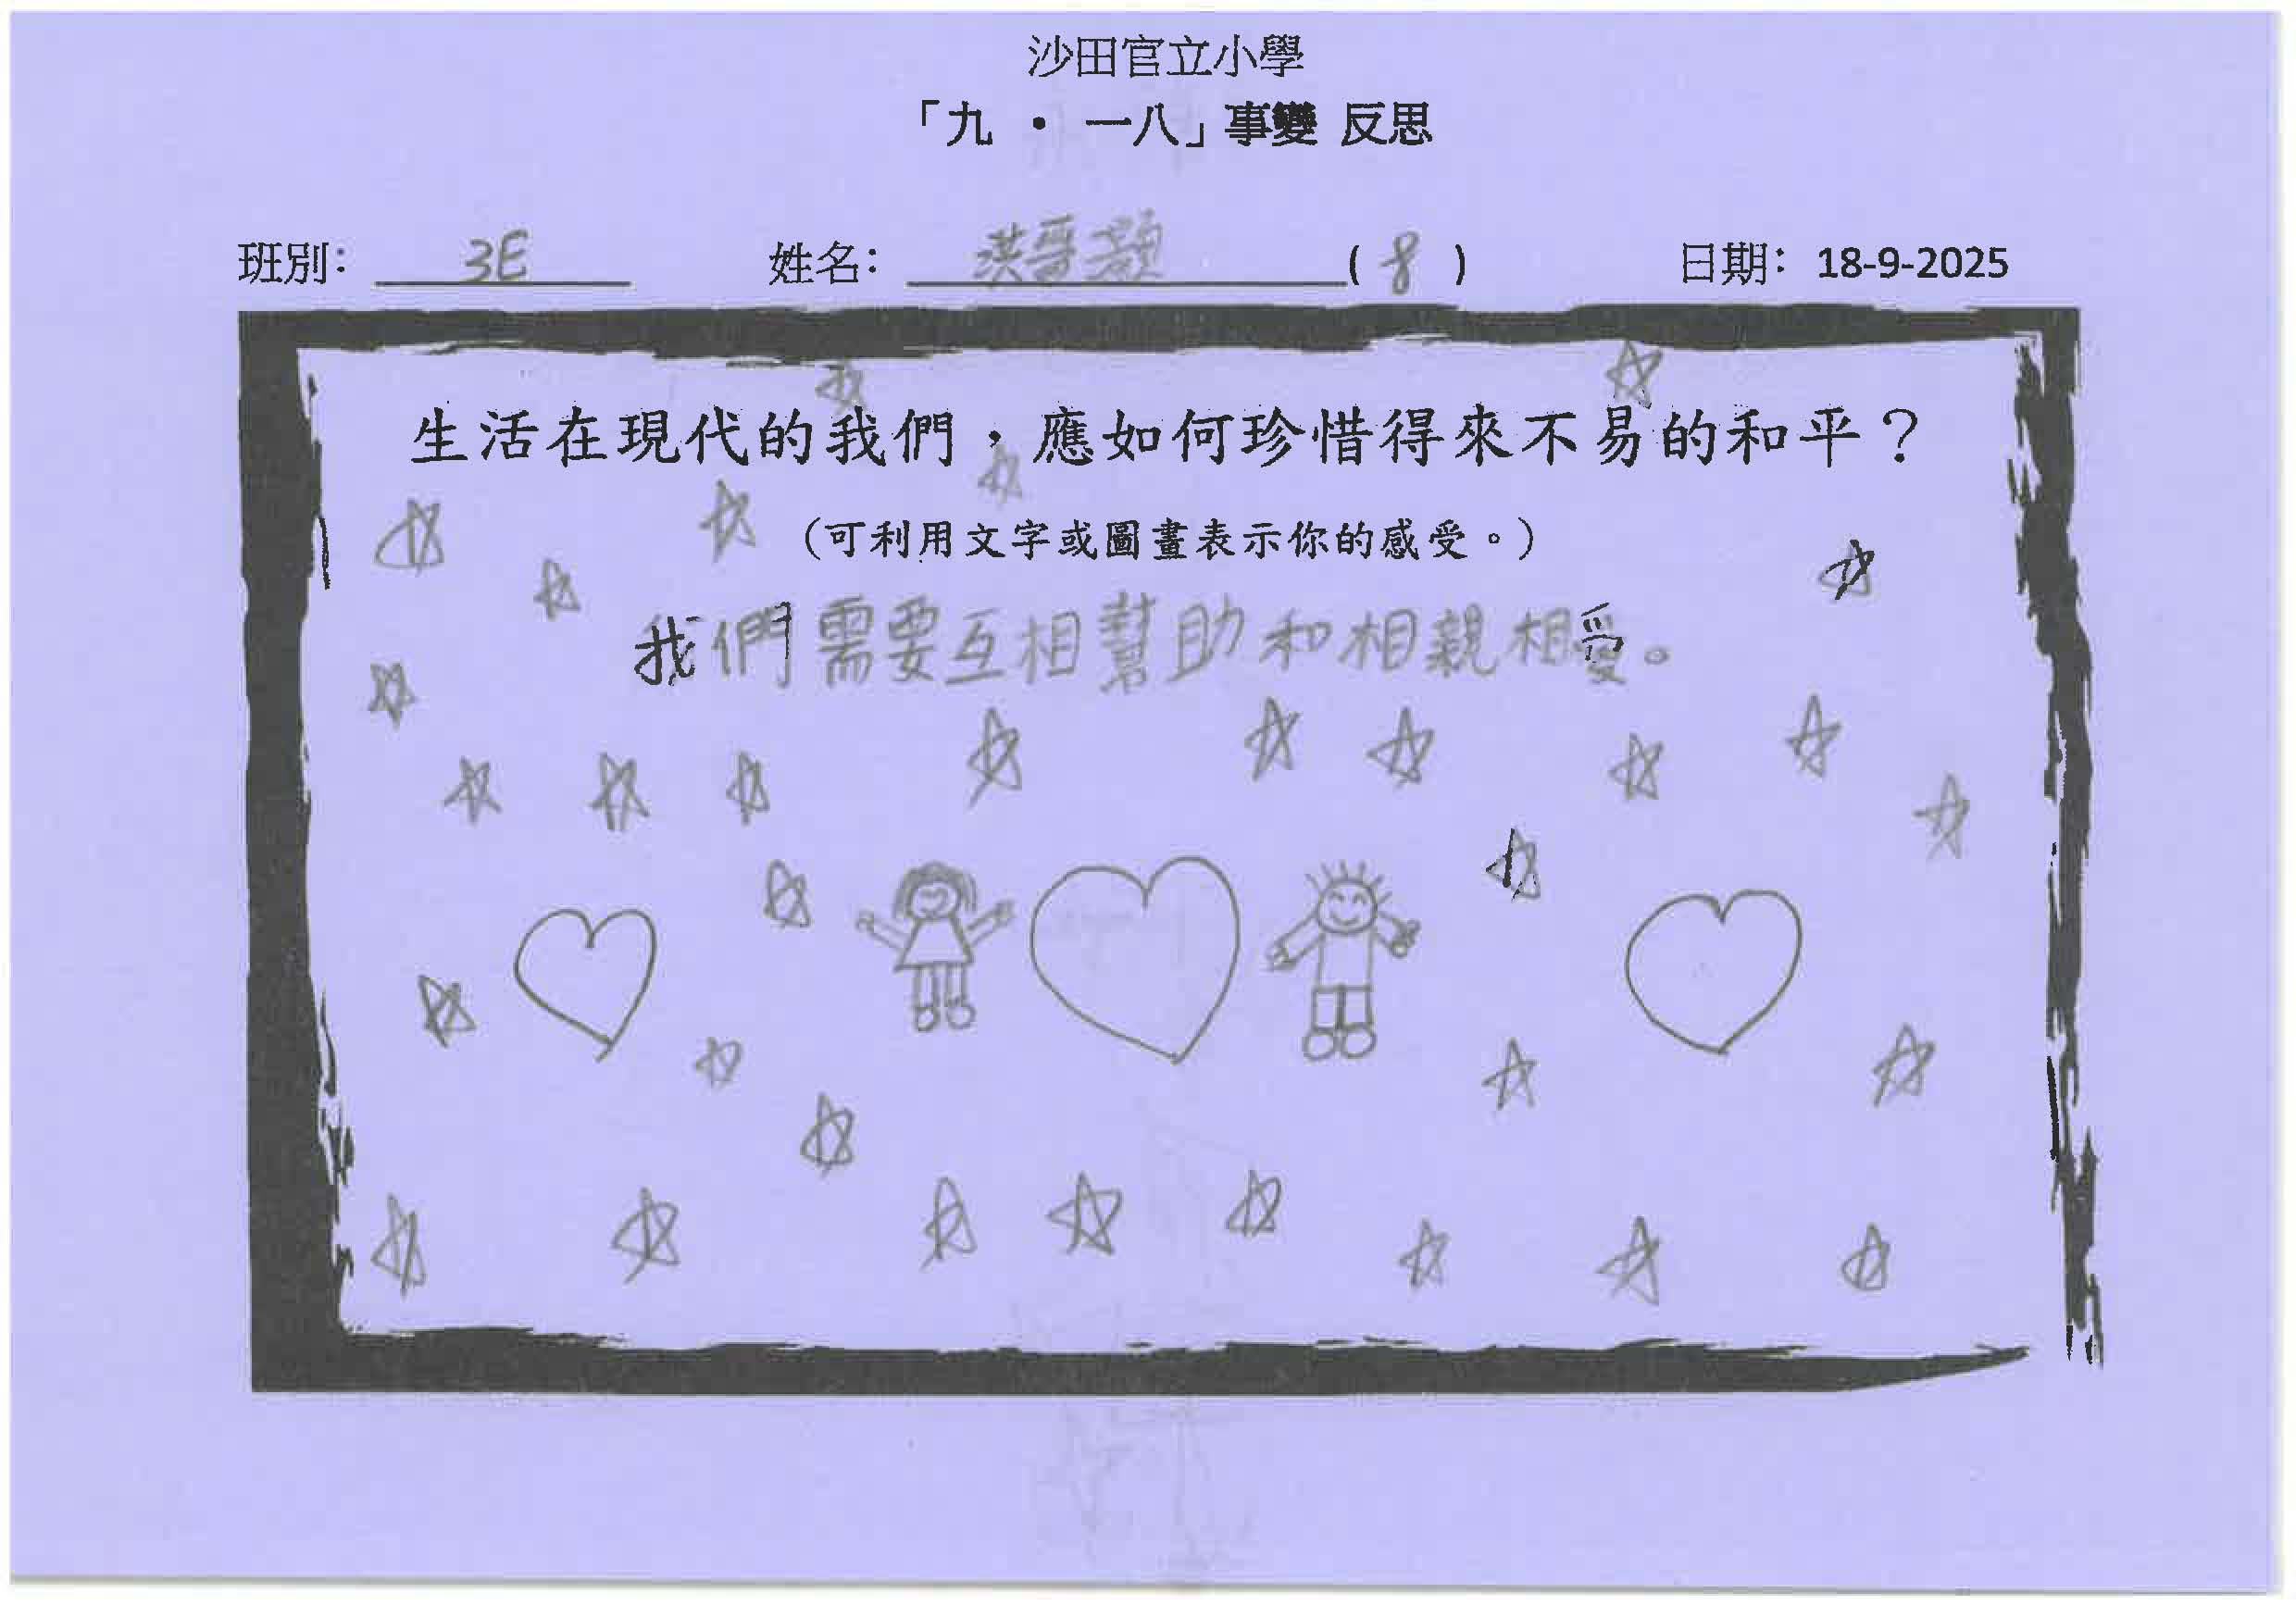 沙田官立小學
「九 · 一八」事變 反思
班別： 3E 姓名： 洪晉顥 ( 8 ) 日期： 18-9-2025
生活在現代的我們，應如何珍惜得來不易的和平？
（可利用文字或圖畫表示你的感受。）
我們需要互相幫助和相親相愛。